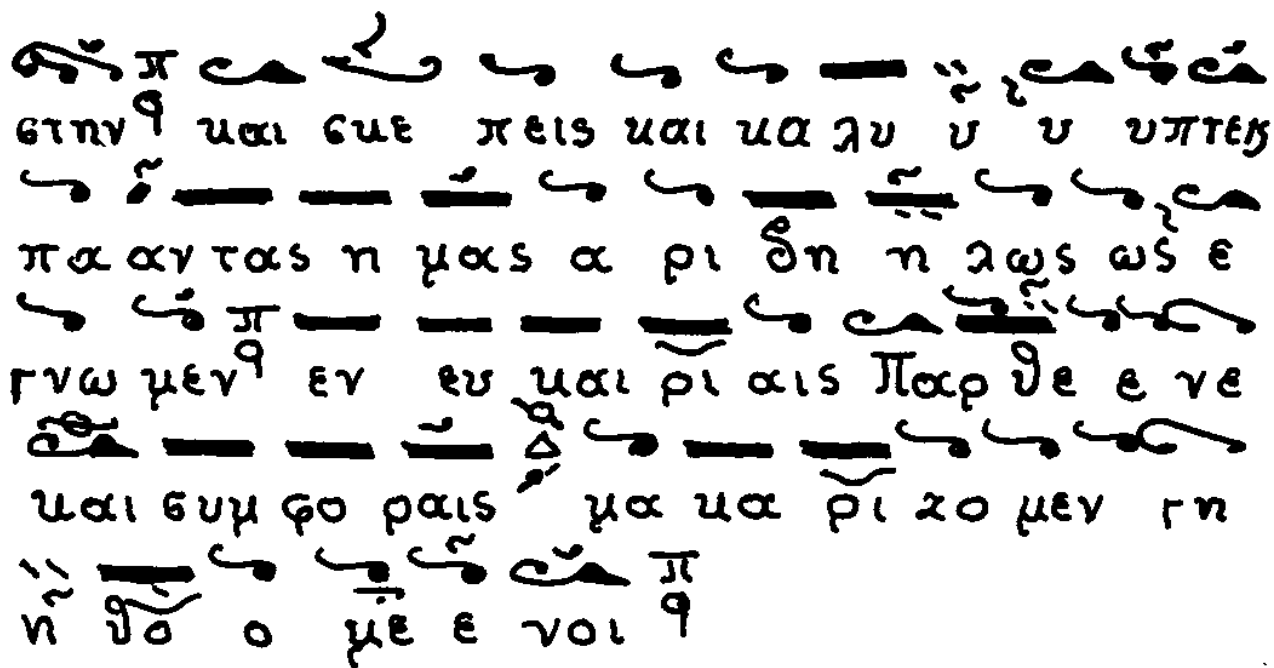 στην και σκε πεις και κα λυ υ υ υπτεις
πα αν τας η μας α ρι δη η λως ως ε
γνω μεν εν ευ και ρι αις Παρ θε ε νε
και συμ φο ραις μα κα ρι ζο μεν γη
η θο ο με ε νοι